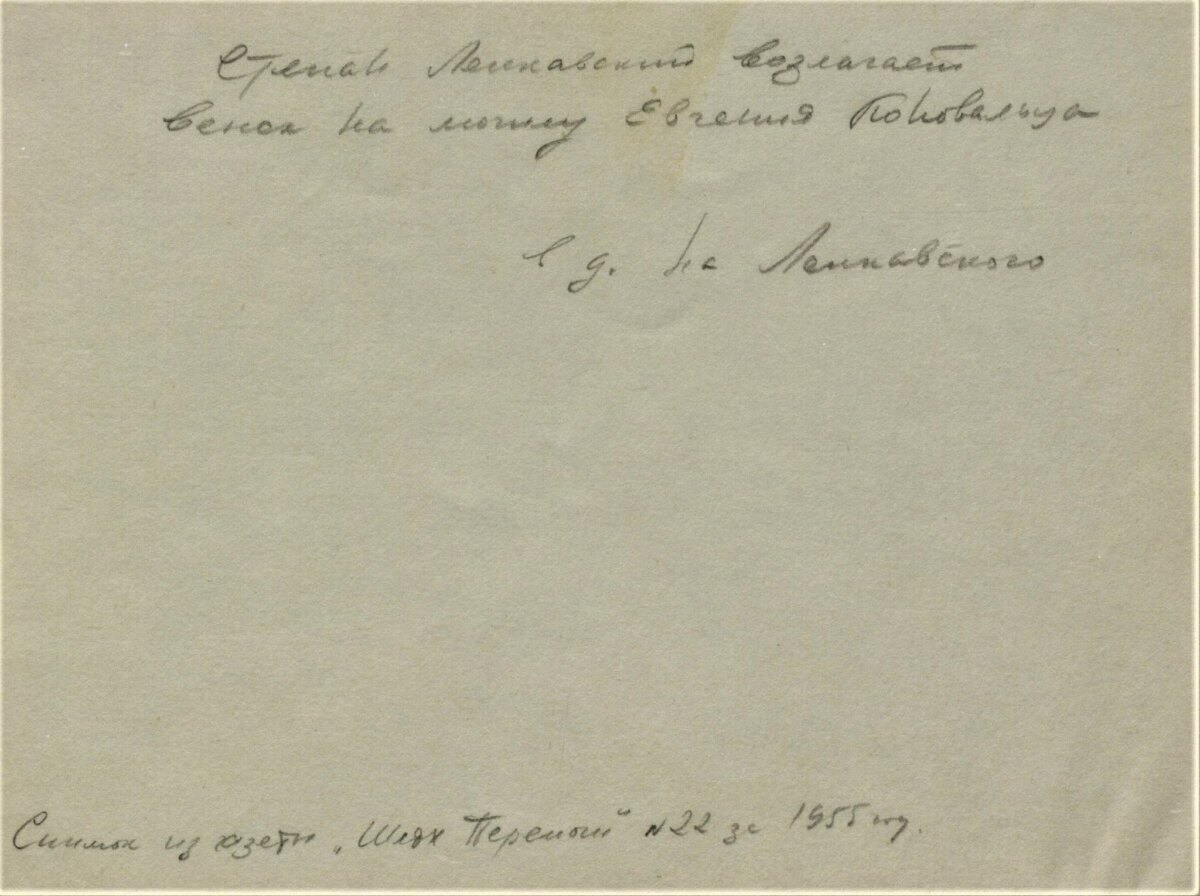 Степан Ленкавский возлагает
венок на могилу Евгения Коновальца
В д. на Ленкавского
Снимок из газеты „Шлях Перемоги" №22 за 1955 год.